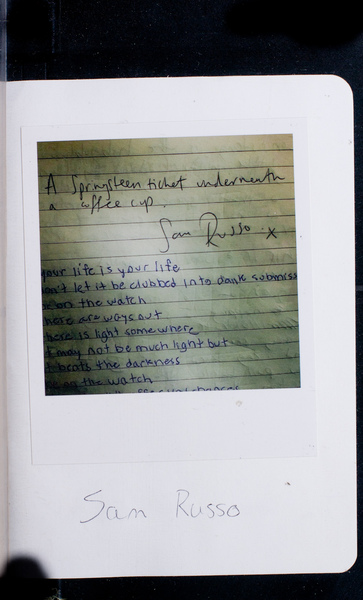 A Springsteen ticket underneath
a coffee cup.
Sam Russo x
your life is your life
don't let it be clubbed into dank submiss
be on the watch
there are ways out
there is light somewhere
it may not be much light but
it beats the darkness
be on the watch
Sam Russo